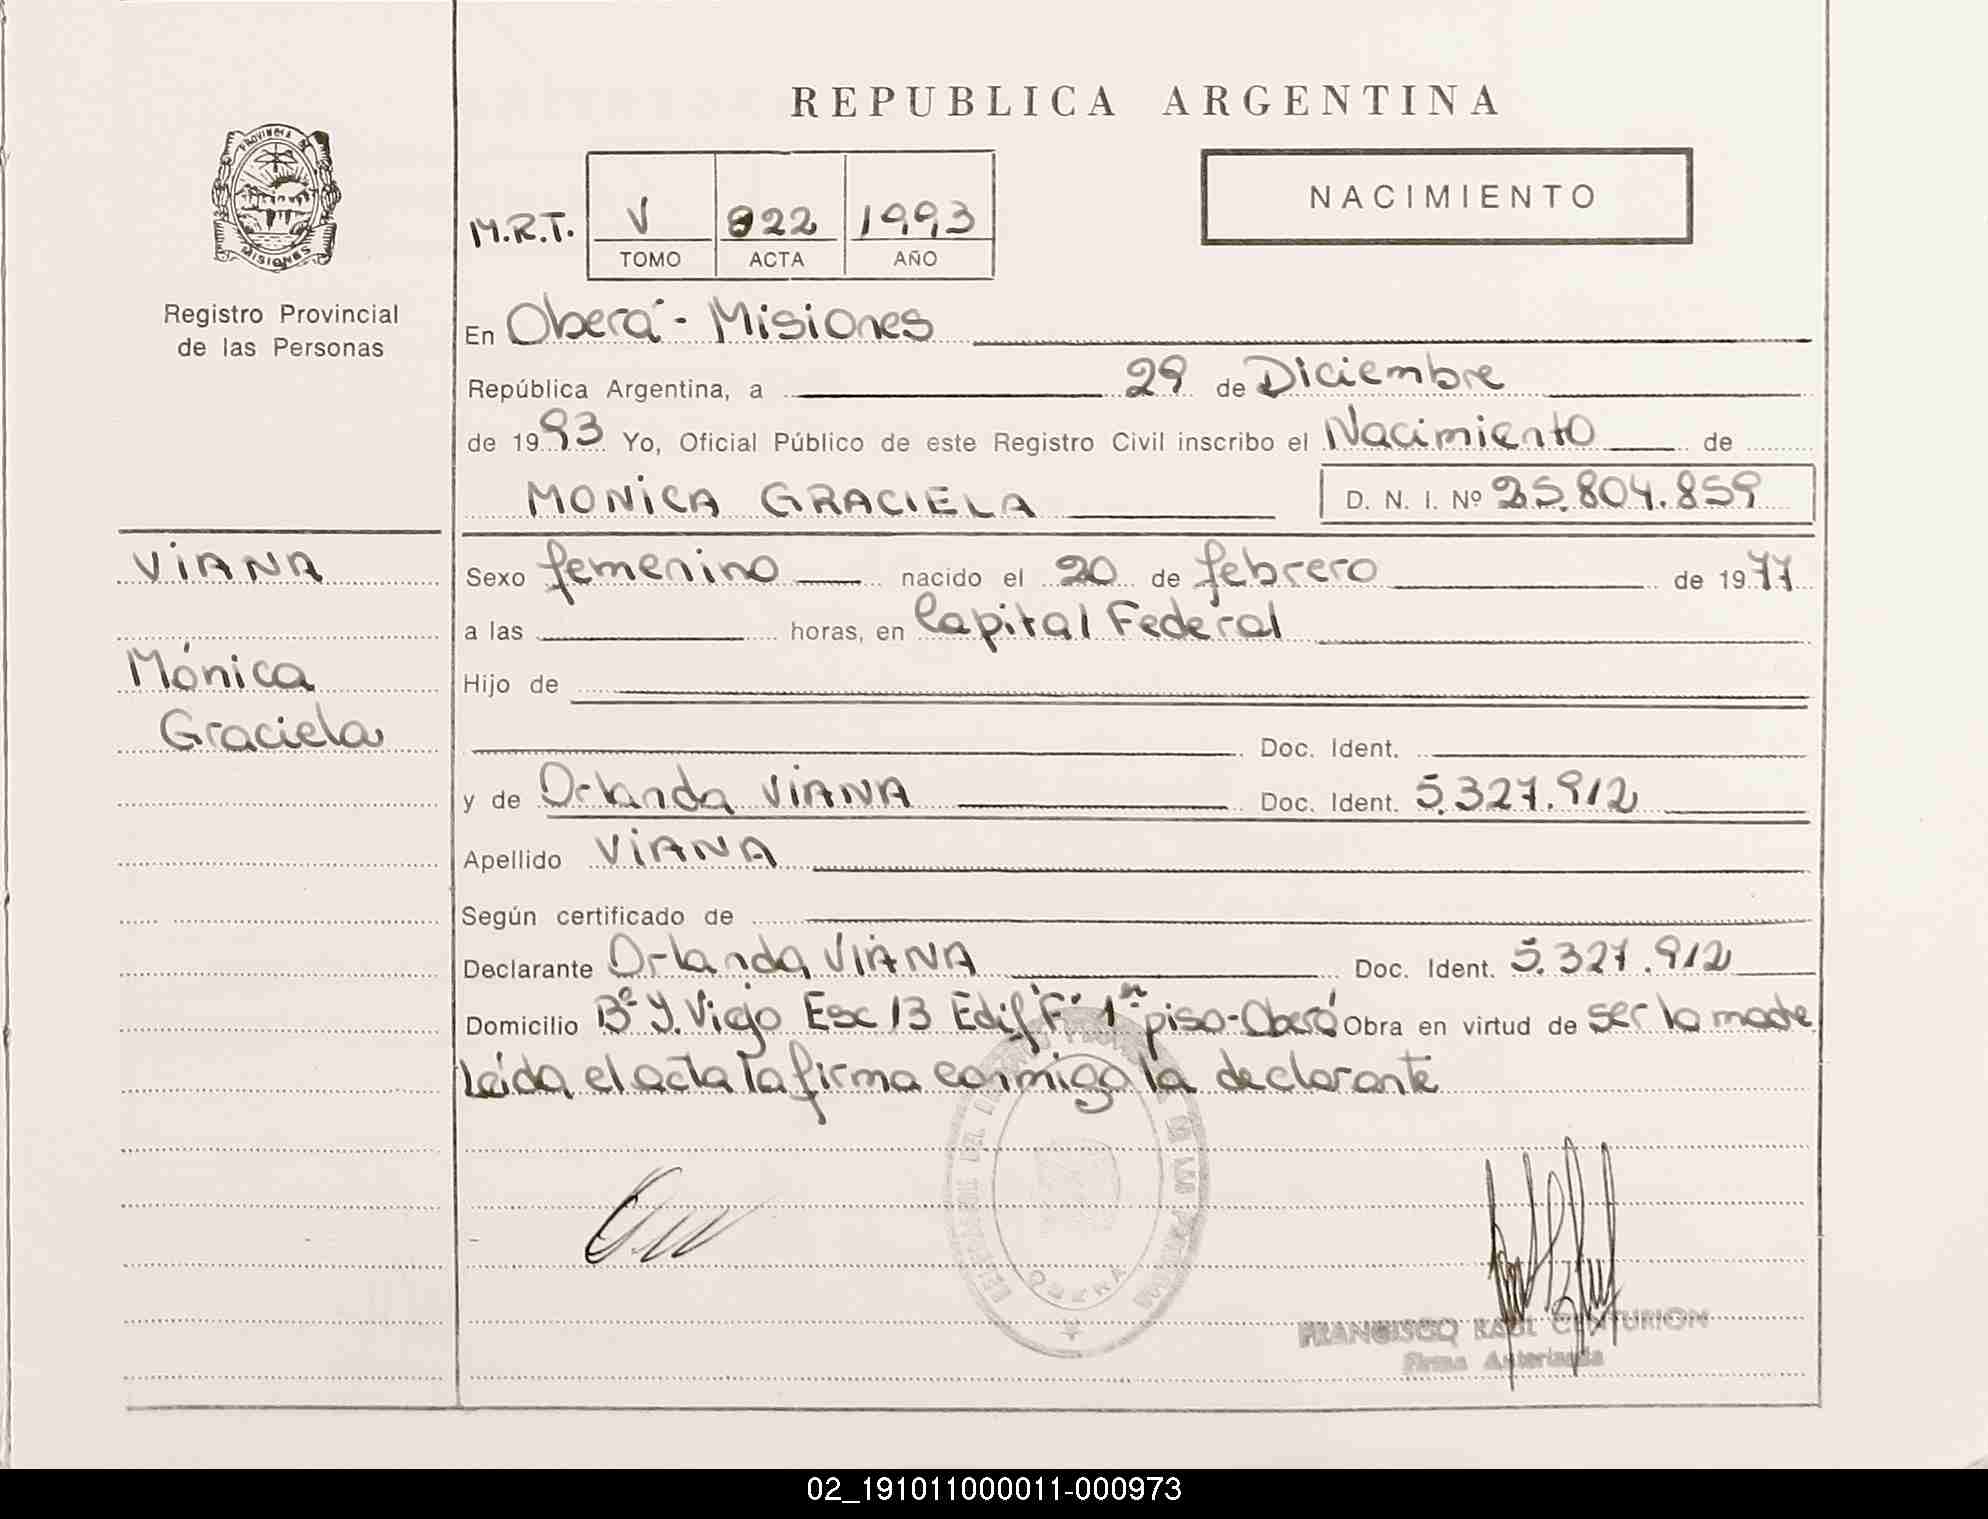 REPUBLICA ARGENTINA
PROVINCIA DE
MISIONES
NACIMIENTO
M.R.T. V 822 1993
TOMO ACTA AÑO
Registro Provincial
de las Personas
En Oberá - Misiones
República Argentina, a 29 de Diciembre
de 1993 Yo, Oficial Público de este Registro Civil inscribo el Nacimiento de
MONICA GRACIELA D. N. I. Nº 25.804.859
VIANA
Mónica
Graciela
Sexo femenino nacido el 20 de febrero de 1977
a las horas, en Capital Federal
Hijo de
Doc. Ident.
y de Orlanda VIANA Doc. Ident. 5.327.912
Apellido VIANA
Según certificado de
Declarante Orlanda VIANA Doc. Ident. 5.327.912
Domicilio Bº Y. Viejo Esc 13 Edif "F" 1er piso - Oberá Obra en virtud de ser la madre
Leída el acta la firma conmigo la declarante
DE LAS
OBERA
FRANCISCO RAUL CENTURION
Firma Autorizada
02_191011000011-000973